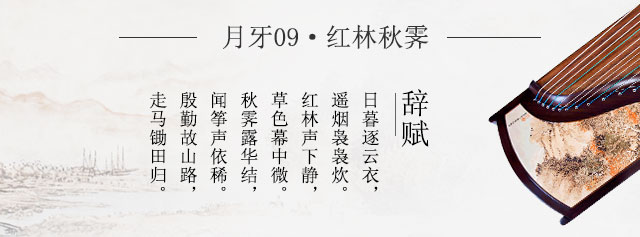 月牙09·红林秋霁
辞赋
日暮逐云衣，
遥烟袅袅炊。
红林声下静，
草色幕中微。
秋霁露华结，
闻筝声依稀。
殷勤故山路，
走马锄田归。